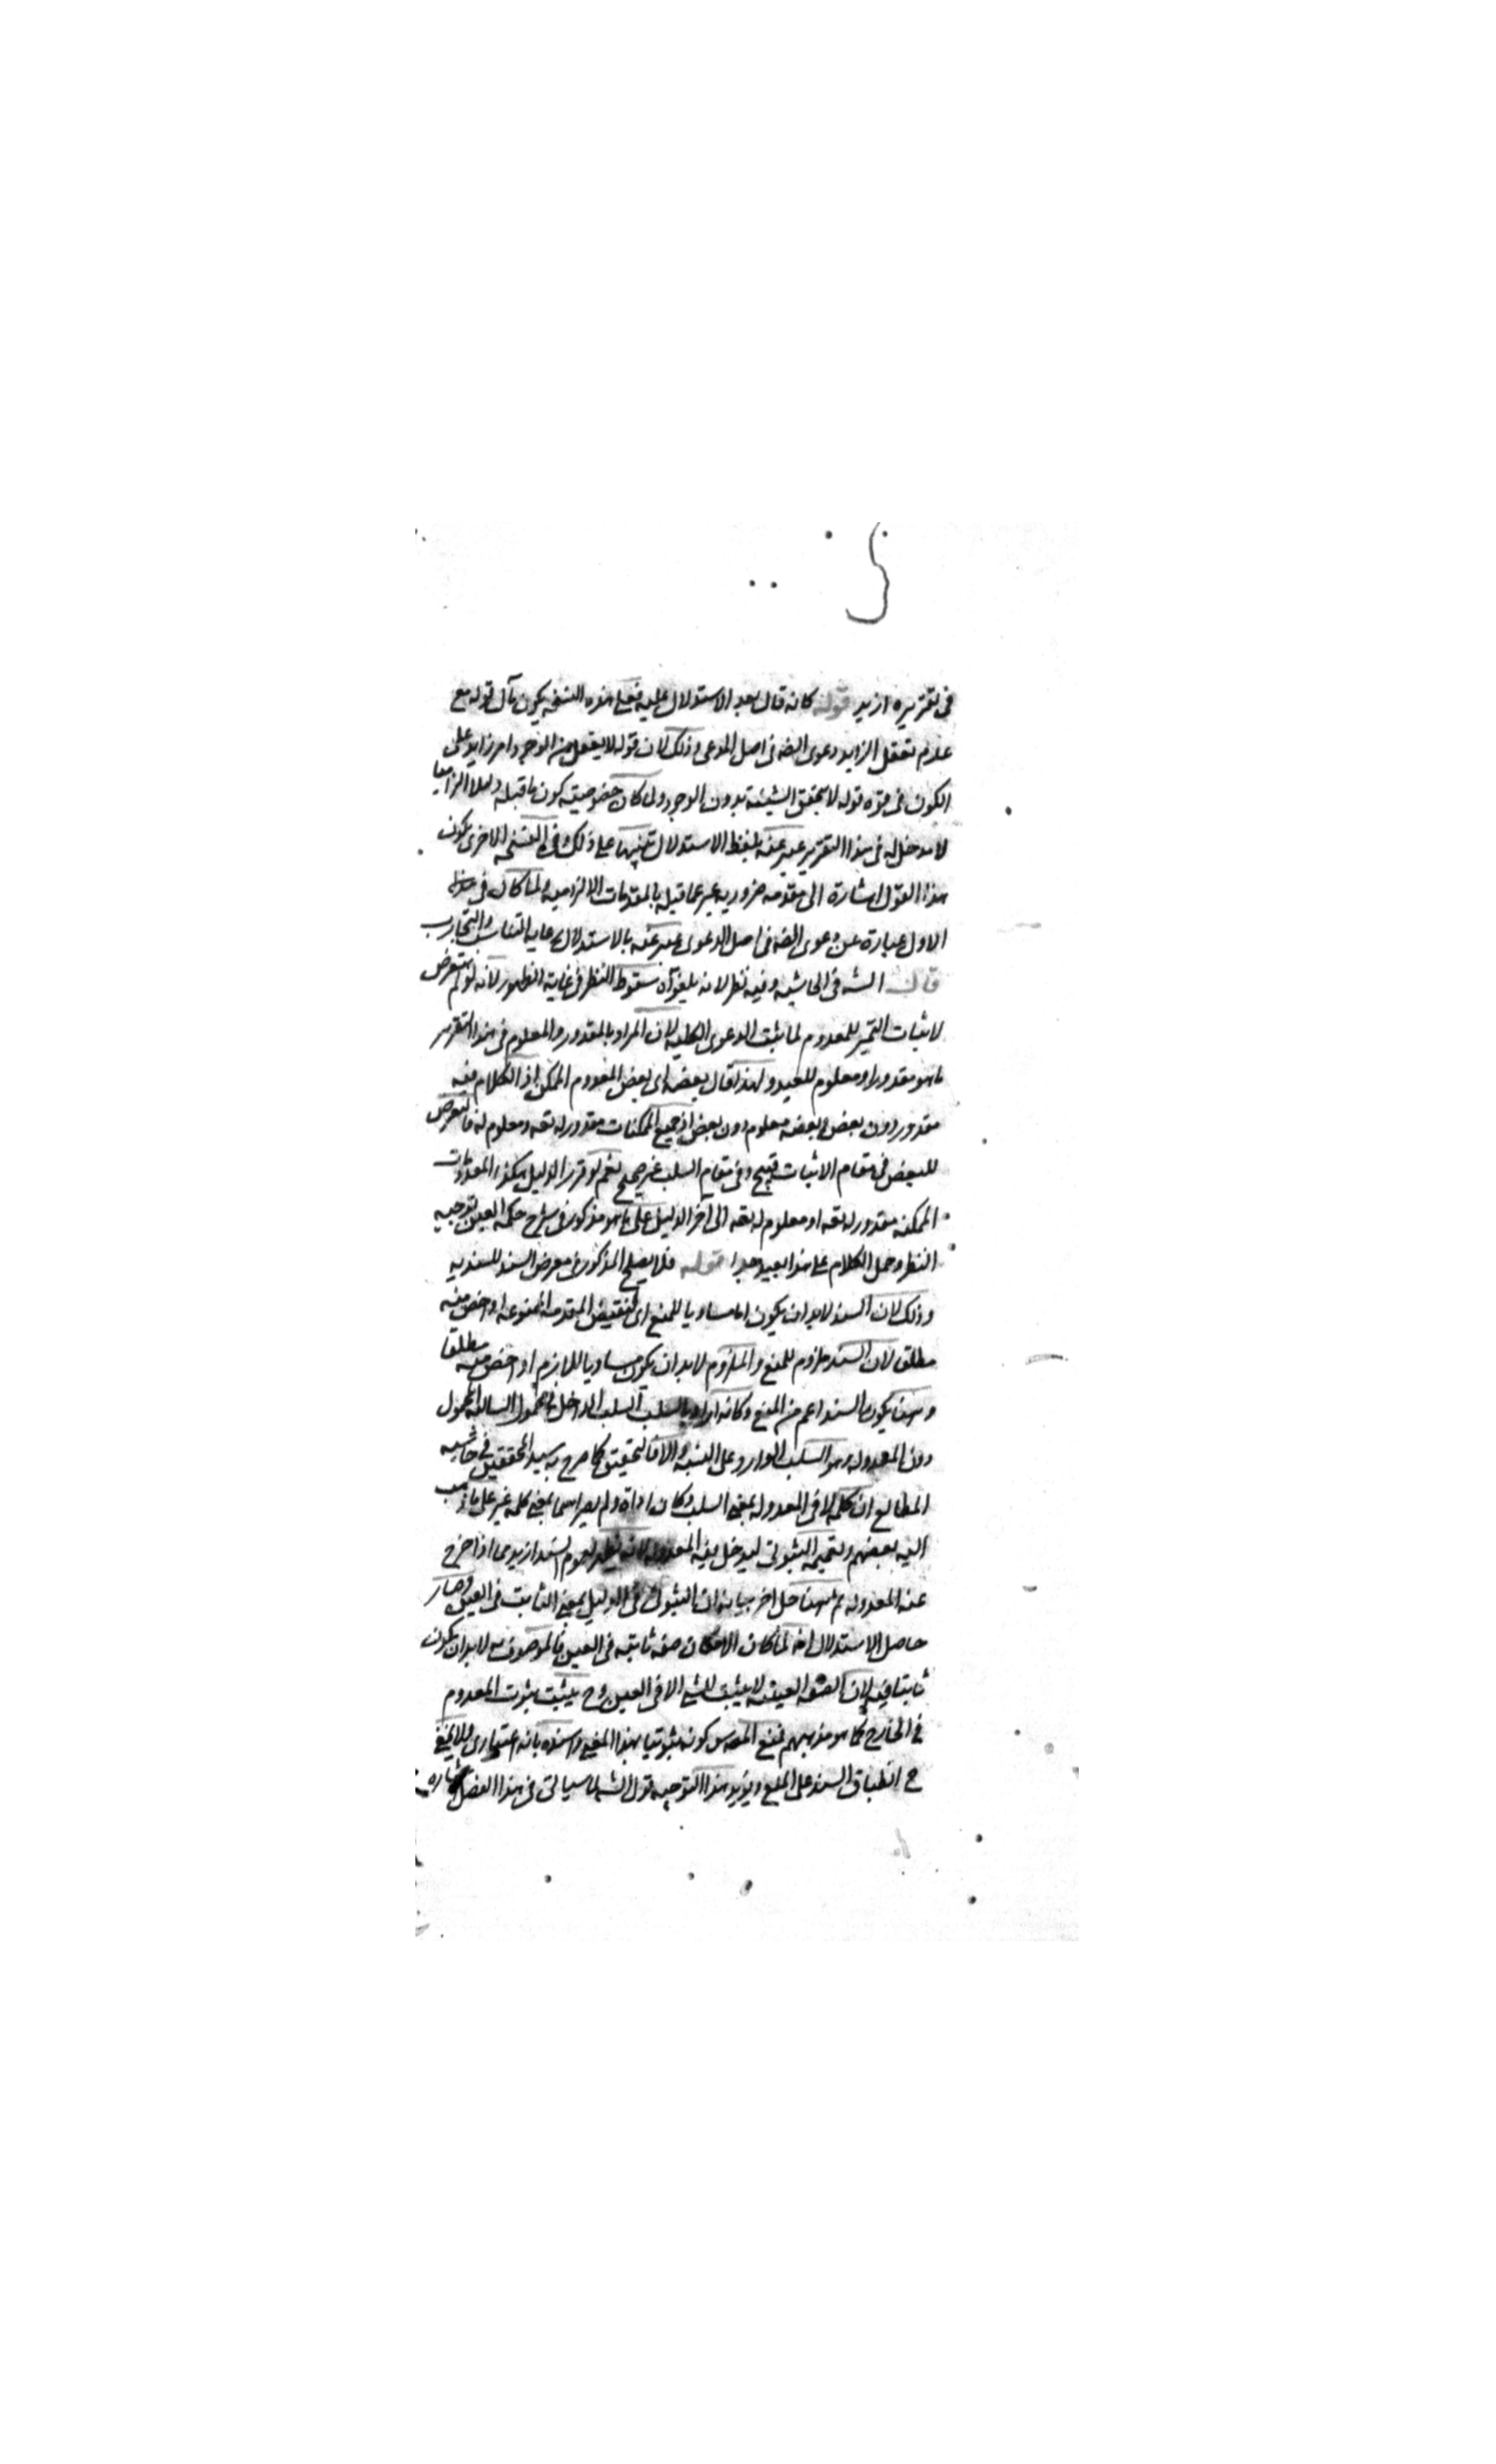 في تقريره ازيد قوله كانه قال بعد الاستدلال عليه فعلى هذه النسخه يكون مآل قوله مع
عدم تعقل الزايد دعوى الضه في اصل المدعى وذلك لان قوله لا يعقل من الوجود امر زايد على
الكون في قوة قوله لا يتحقق الشيئية بدون الوجود ولما كان خصوصيته كون ما قبله دليلا الزاميا
لا مدخل له في هذا التقرير عبر عنه بلفظ الاستدلال تنبيها على ذلك وفي النسخه الاخرى يكون
هذا القول اشارة الى مقدمه ضروريه عبر عما قبله بالمقدمات الالزاميه ولما كان في
الاول عبارة عن دعوى الضه في اصل الدعوى عبر عنه بالاستدلال رعايه التناسب والتجارب
قال الشه في الحاشيه وفيه نظر لانه يلغو آه سقوط النظر في غاية الظهور لانه لو لم يتعرض
لاثبات التميز للمعدوم لما يثبت الدعوى الكليه لان المراد بالمقدور والمعلوم في هذا التقرير
ما هو مقدور او معلوم للعبد ولهذا قال بعضه اى بعض المعدوم الممكن اذ الكلام فيه
مقدور دون بعض وبعضه معلوم دون بعض اذ جميع الممكنات مقدور له تعه ومعلوم له فالتعرض
للبعض في مقام الاثبات قبيح وفي مقام السلب غير صحيح نعم لو قرر الدليل هكذا المعدومات
الممكنه مقدور له تعه او معلوم له تعه الى آخر الدليل على ما هو مذكور في شرح حكمه العين توجيه
النظر وحمل الكلام على هذا بعيد جدا قوله فلا يصلح المذكور في معرض السند للسنديه
وذلك لان السند لا بد ان يكون اما مساويا للمنع اى لنقيض المقدمه الممنوعه او اخص منه
مطلق لان السند ملزوم للمنع والملزوم لا بد ان يكون مساويا للازم او اخص منه مطلقا
وههنا يكون السند اعم من المنع وكانه اراد بالسلب السلب الداخل في محمول السالبه المحمول
دون المعدوله وهو السلب الوارد على النسبه والا فالتحقيق كما صرح به سيد المحققين في حاشيه
المطالع ان كلمه لا في المعدوله بمعنى السلب وكان اداة ولم يصر اسما بمعنى كلمه غير على ما ذهب
اليه بعضهم وتعميمه الثبوتى ليدخل فيه المعدوله لانه يظهر لعموم السند ازيد مما اذا خرج
عنه المعدوله ثم ههنا حل اخر بيانه ان الثبوتى في الدليل بمعنى الثابت في العين وصار
حاصل الاستدلال انه لما كان الامكان صفه ثابته في العين فالموصوف به لا بد ان يكون
ثابتا فيه لان الصفه العينيه لا يثبت لشئ الا في العين وح يثبت ثبوت المعدوم
في الخارج كما هو مذهبهم فمنع المص كونه ثبوتيا بهذا المعنى واسنده بانه اعتبارى ولا يخفى
ح انطباق السند على المنع ويؤيد هذا التوجيه قول الشه لما سياتى في هذا الفصل